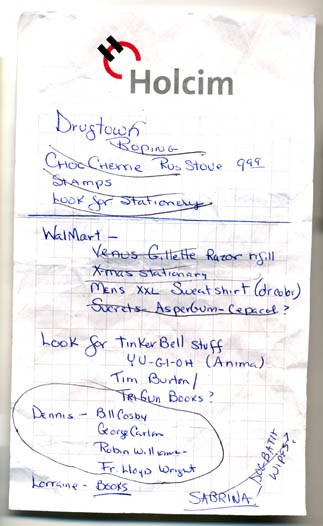 Holcim
Drugtown
Roping
Choc Cherrie Rus Stove 999
Stamps
Look for Stationery
WalMart -
Venus Gillette Razor refill
X-mas stationary
Mens XXL Sweatshirt (dr color)
Sucrets - Aspergum - Cepacol?
Look for Tinker Bell Stuff
YU-GI-OH (Anima)
Tim Burton/
TriGun Books?
Dennis - Bill Cosby
George Carlin
Robin Williams
Fr. Lloyd Wright
Lorraine - Books
SABRINA - DOG BATH
WIPES?